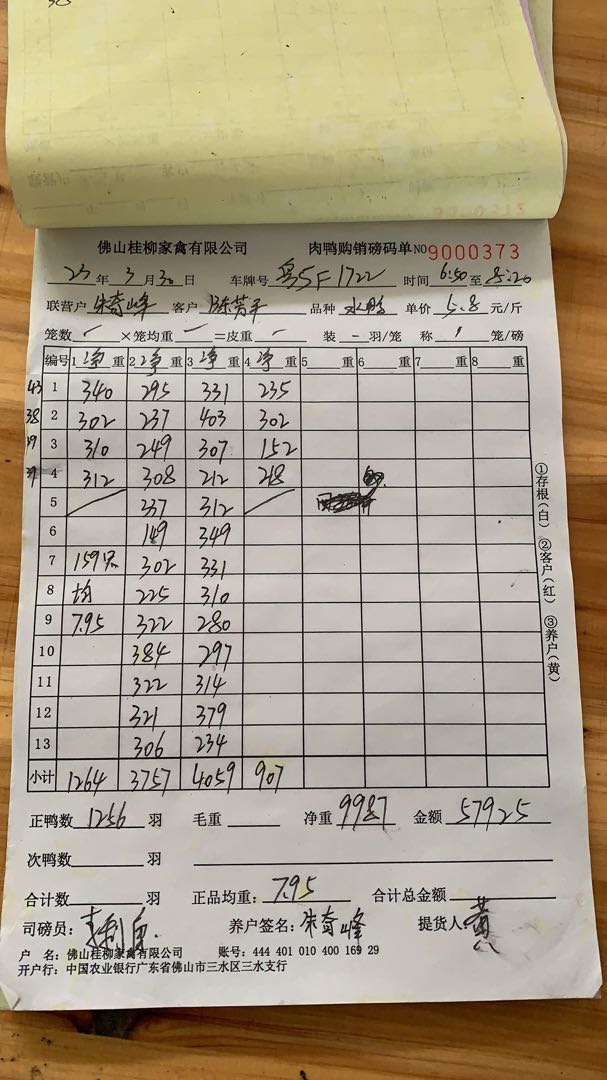 佛山桂柳家禽有限公司 肉鸭购销磅码单 NO 9000373
23 年 3 月 30 日 车牌号 粤SF1722 时间 6:50 至 8:20
联营户 朱奇峰 客户 陈芳平 品种 水鸭 单价 5.8 元/斤
笼数 × 笼均重 = 皮重 装 羽/笼 称 笼/磅
编号 1 净 重 2 净 重 3 净 重 4 净 重 5 重 6 重 7 重 8 重
43 1 340 295 331 235
38 2 302 237 403 302
39 3 310 249 307 152
39 4 312 308 212 218
5 237 312
6 149 349
7 159只 302 331
8 均 225 310
9 7.95 322 280
10 384 297
11 322 314
12 321 379
13 306 234
小计 1264 3757 4059 907
正鸭数 1256 羽 毛重 净重 9987 金额 57925
次鸭数 羽
合计数 羽 正品均重: 7.95 合计总金额
司磅员: 养户签名: 朱奇峰 提货人: 黄
户 名: 佛山桂柳家禽有限公司 账号: 444 401 010 400 169 29
开户行: 中国农业银行广东省佛山市三水区三水支行
①存根(白) ②客户(红) ③养户(黄)